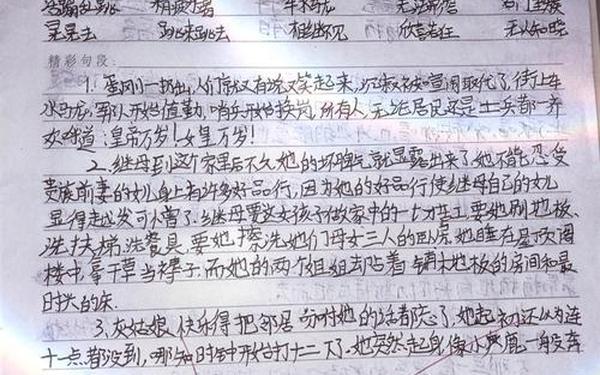 车水马龙
晃来晃去 跳来跳去 相继出现 欣喜若狂 无人知晓
精彩句段:
1. 蛋刚一拱出,人们就又有说又笑起来,沉寂被喧闹取代了,街上车
水马龙,军队开始值勤,哨兵开始换岗,所有人,无论居民还是士兵都一齐
欢呼道:皇帝万岁!女皇万岁!
2. 继母到这个家里后不久她的坏脾气就显露出来了,她不能忍受
贵族前妻的女儿身上有许多好品行,因为她的好品行使继母自己的女儿
显得越发可憎了.继母要这女孩子做家中的一切杂工要她刷地板、
洗扶梯.洗餐具,要她擦洗她们母女三人的卧房,她睡在屋顶阁
楼中,拿干草当褥子,而她的两个姐姐去占着铺木地板的房间和最
时兴的床.
3、灰姑娘,快乐得把邻居吩咐她的话都忘了,她起初还以为连
十一点都没到,哪知时钟开始打十二下了.她突然起身,像小鹿一般